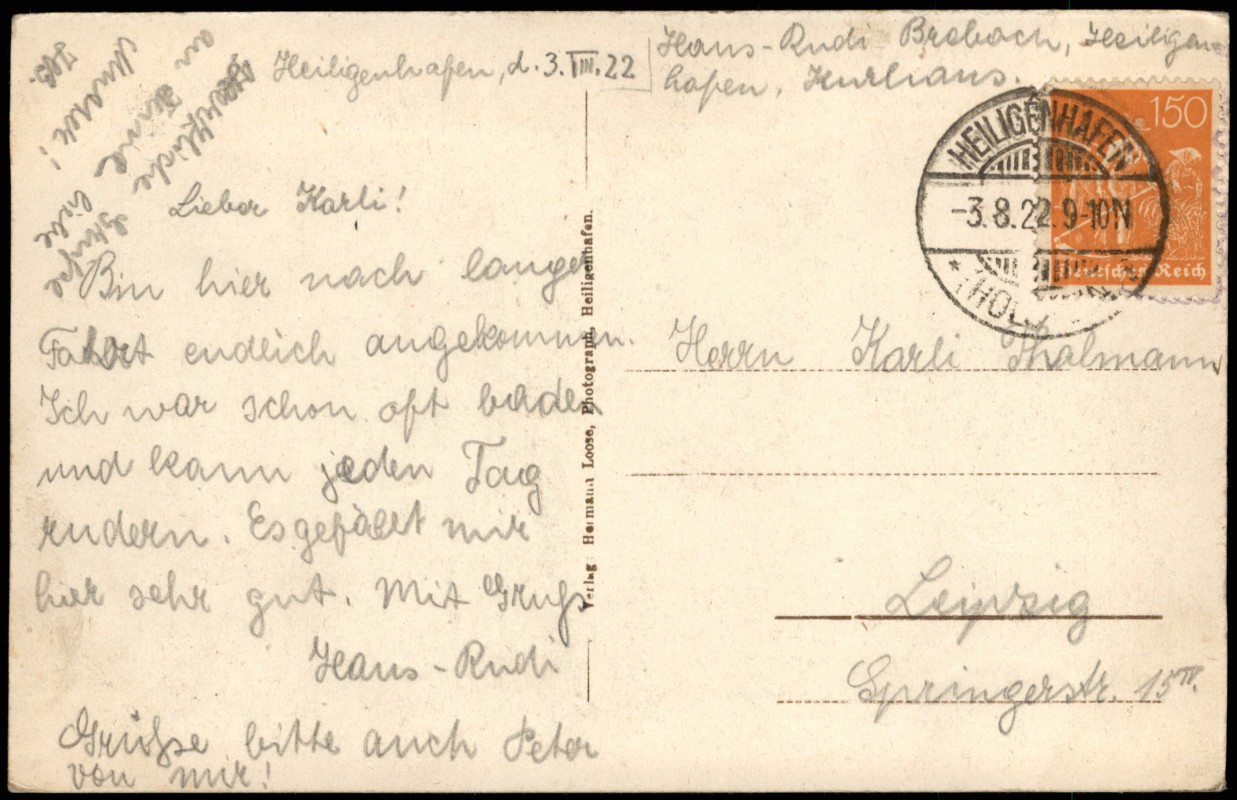 Heiligenhafen, d. 3. VIII. 22
Hans-Rudi Brobach, Heiligen-
hafen, Kurhaus.
Lieber Karli!
Bin hier nach langer
Fahrt endlich angekommen.
Ich war schon oft baden
und kann jeden Tag
rudern. Es gefällt mir
hier sehr gut. Mit Gruß
Hans-Rudi
Grüße bitte auch Peter
von mir!
Herzliche Grüße
an Deine liebe
Verlag: Hermann Loose, Photograph, Heiligenhafen.
HEILIGENHAFEN
-3.8.22.9-10N
150
Deutsches Reich
Herrn Karli Thalmann
Leipzig
Springerstr. 15 IV.